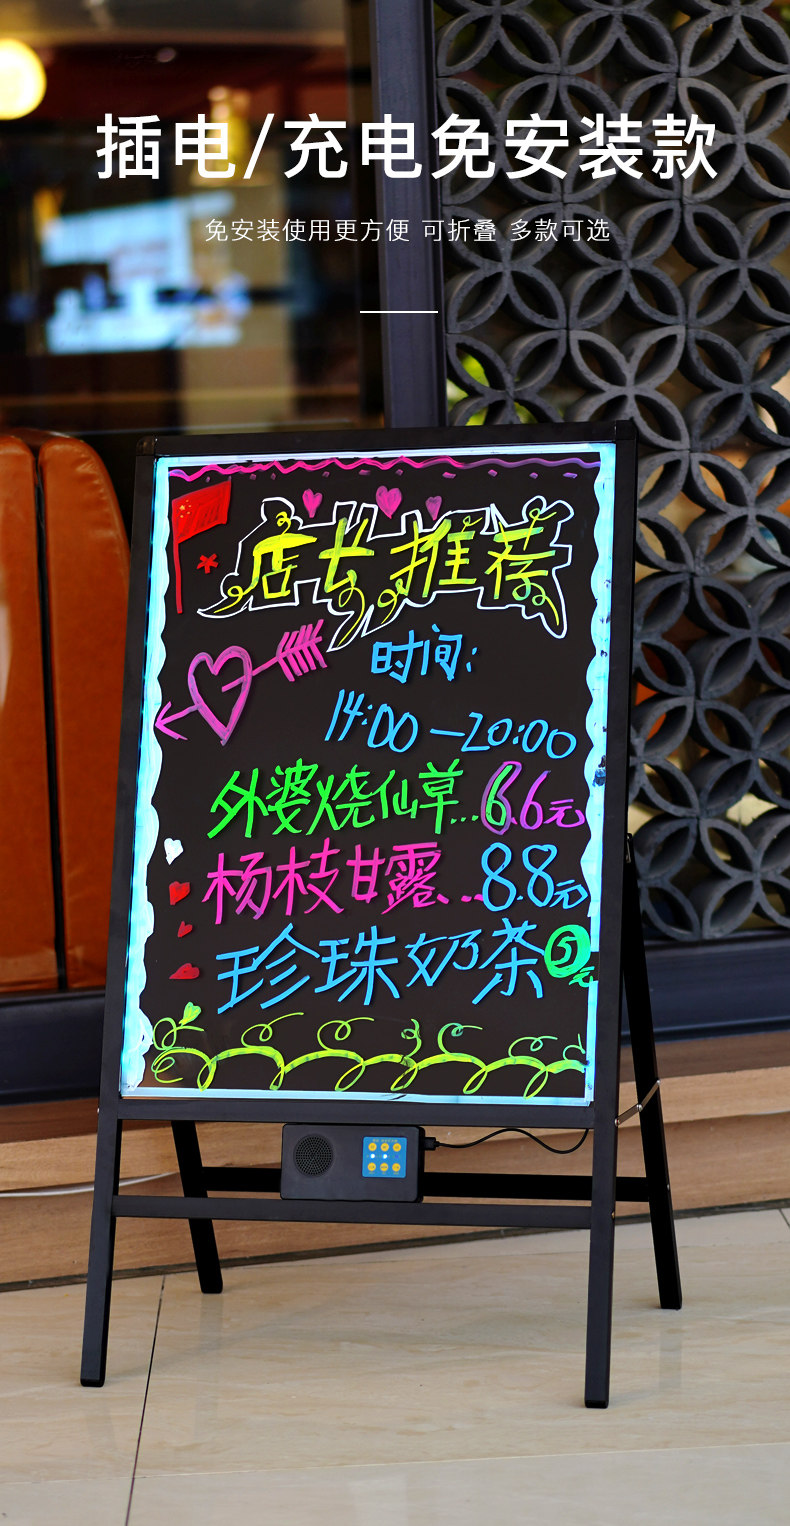 插电/充电免安装款
免安装使用更方便 可折叠 多款可选
店长推荐
时间:
14:00—20:00
外婆烧仙草...6.6元
杨枝甘露...8.8元
珍珠奶茶5元